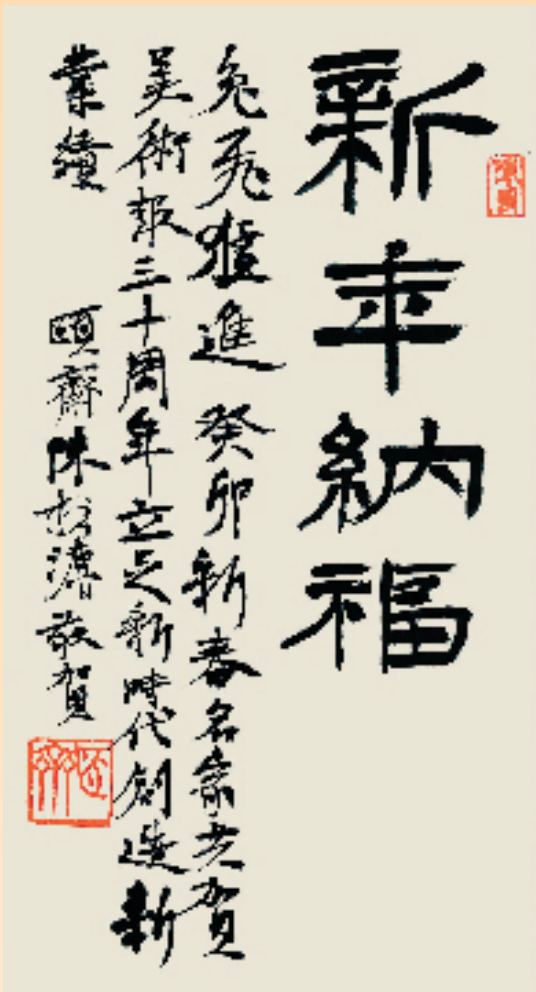 新年納福
兔飛猛進 癸卯新春名家共賀
美術報三十周年立足新時代創造新
業績 頤齋陳松濤敬賀